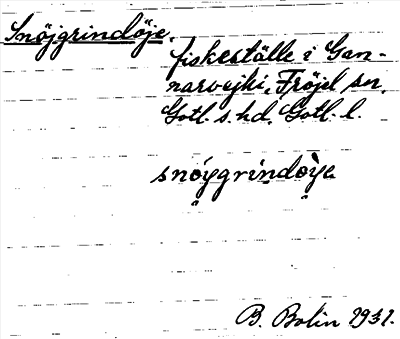 Snöjgrindöje,
fiskeställe i Gan-
narvejki, Fröjel sn,
Gotl. s. hd, Gotl. l.
snóygrindòya
B. Bolin 1931.